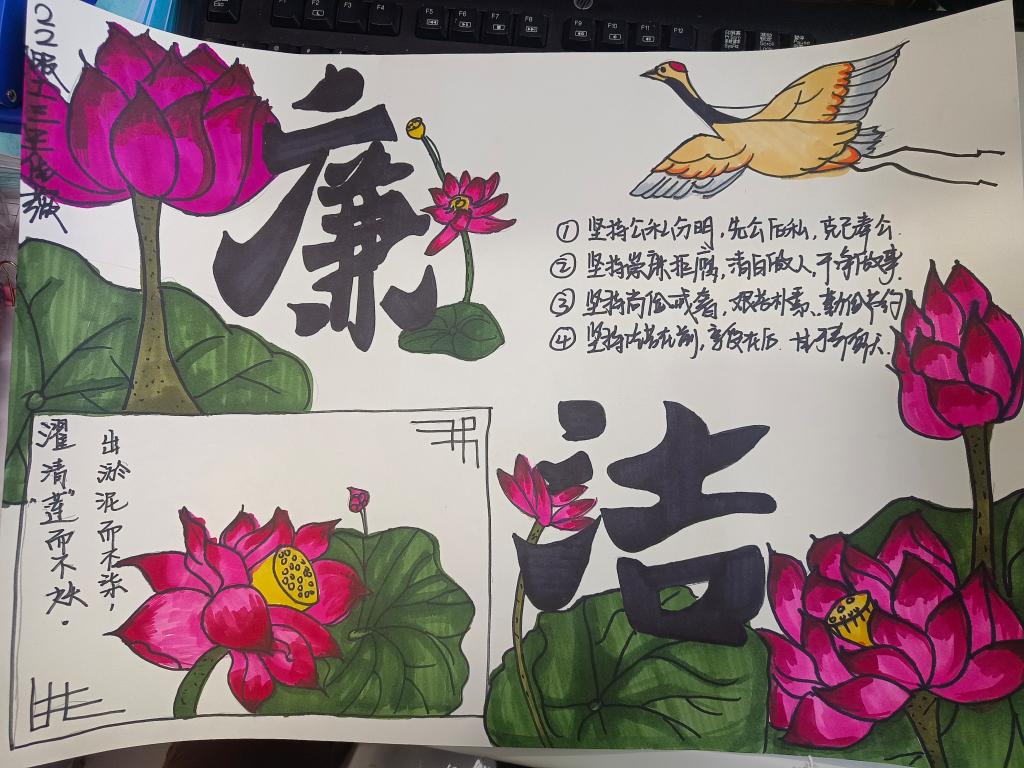 Esc F1 F2 F3 F4 F5 F6 F7 F8 F9 F10 F11 F12
22服工三王佳薇
廉
①坚持公私分明，先公后私，克己奉公.
②坚持崇廉拒腐，清白做人，干净做事.
③坚持尚俭戒奢，艰苦朴素、勤俭节约
④坚持吃苦在前，享受在后.甘于奉献.
洁
出淤泥而不染，
濯清“莲”而不妖.